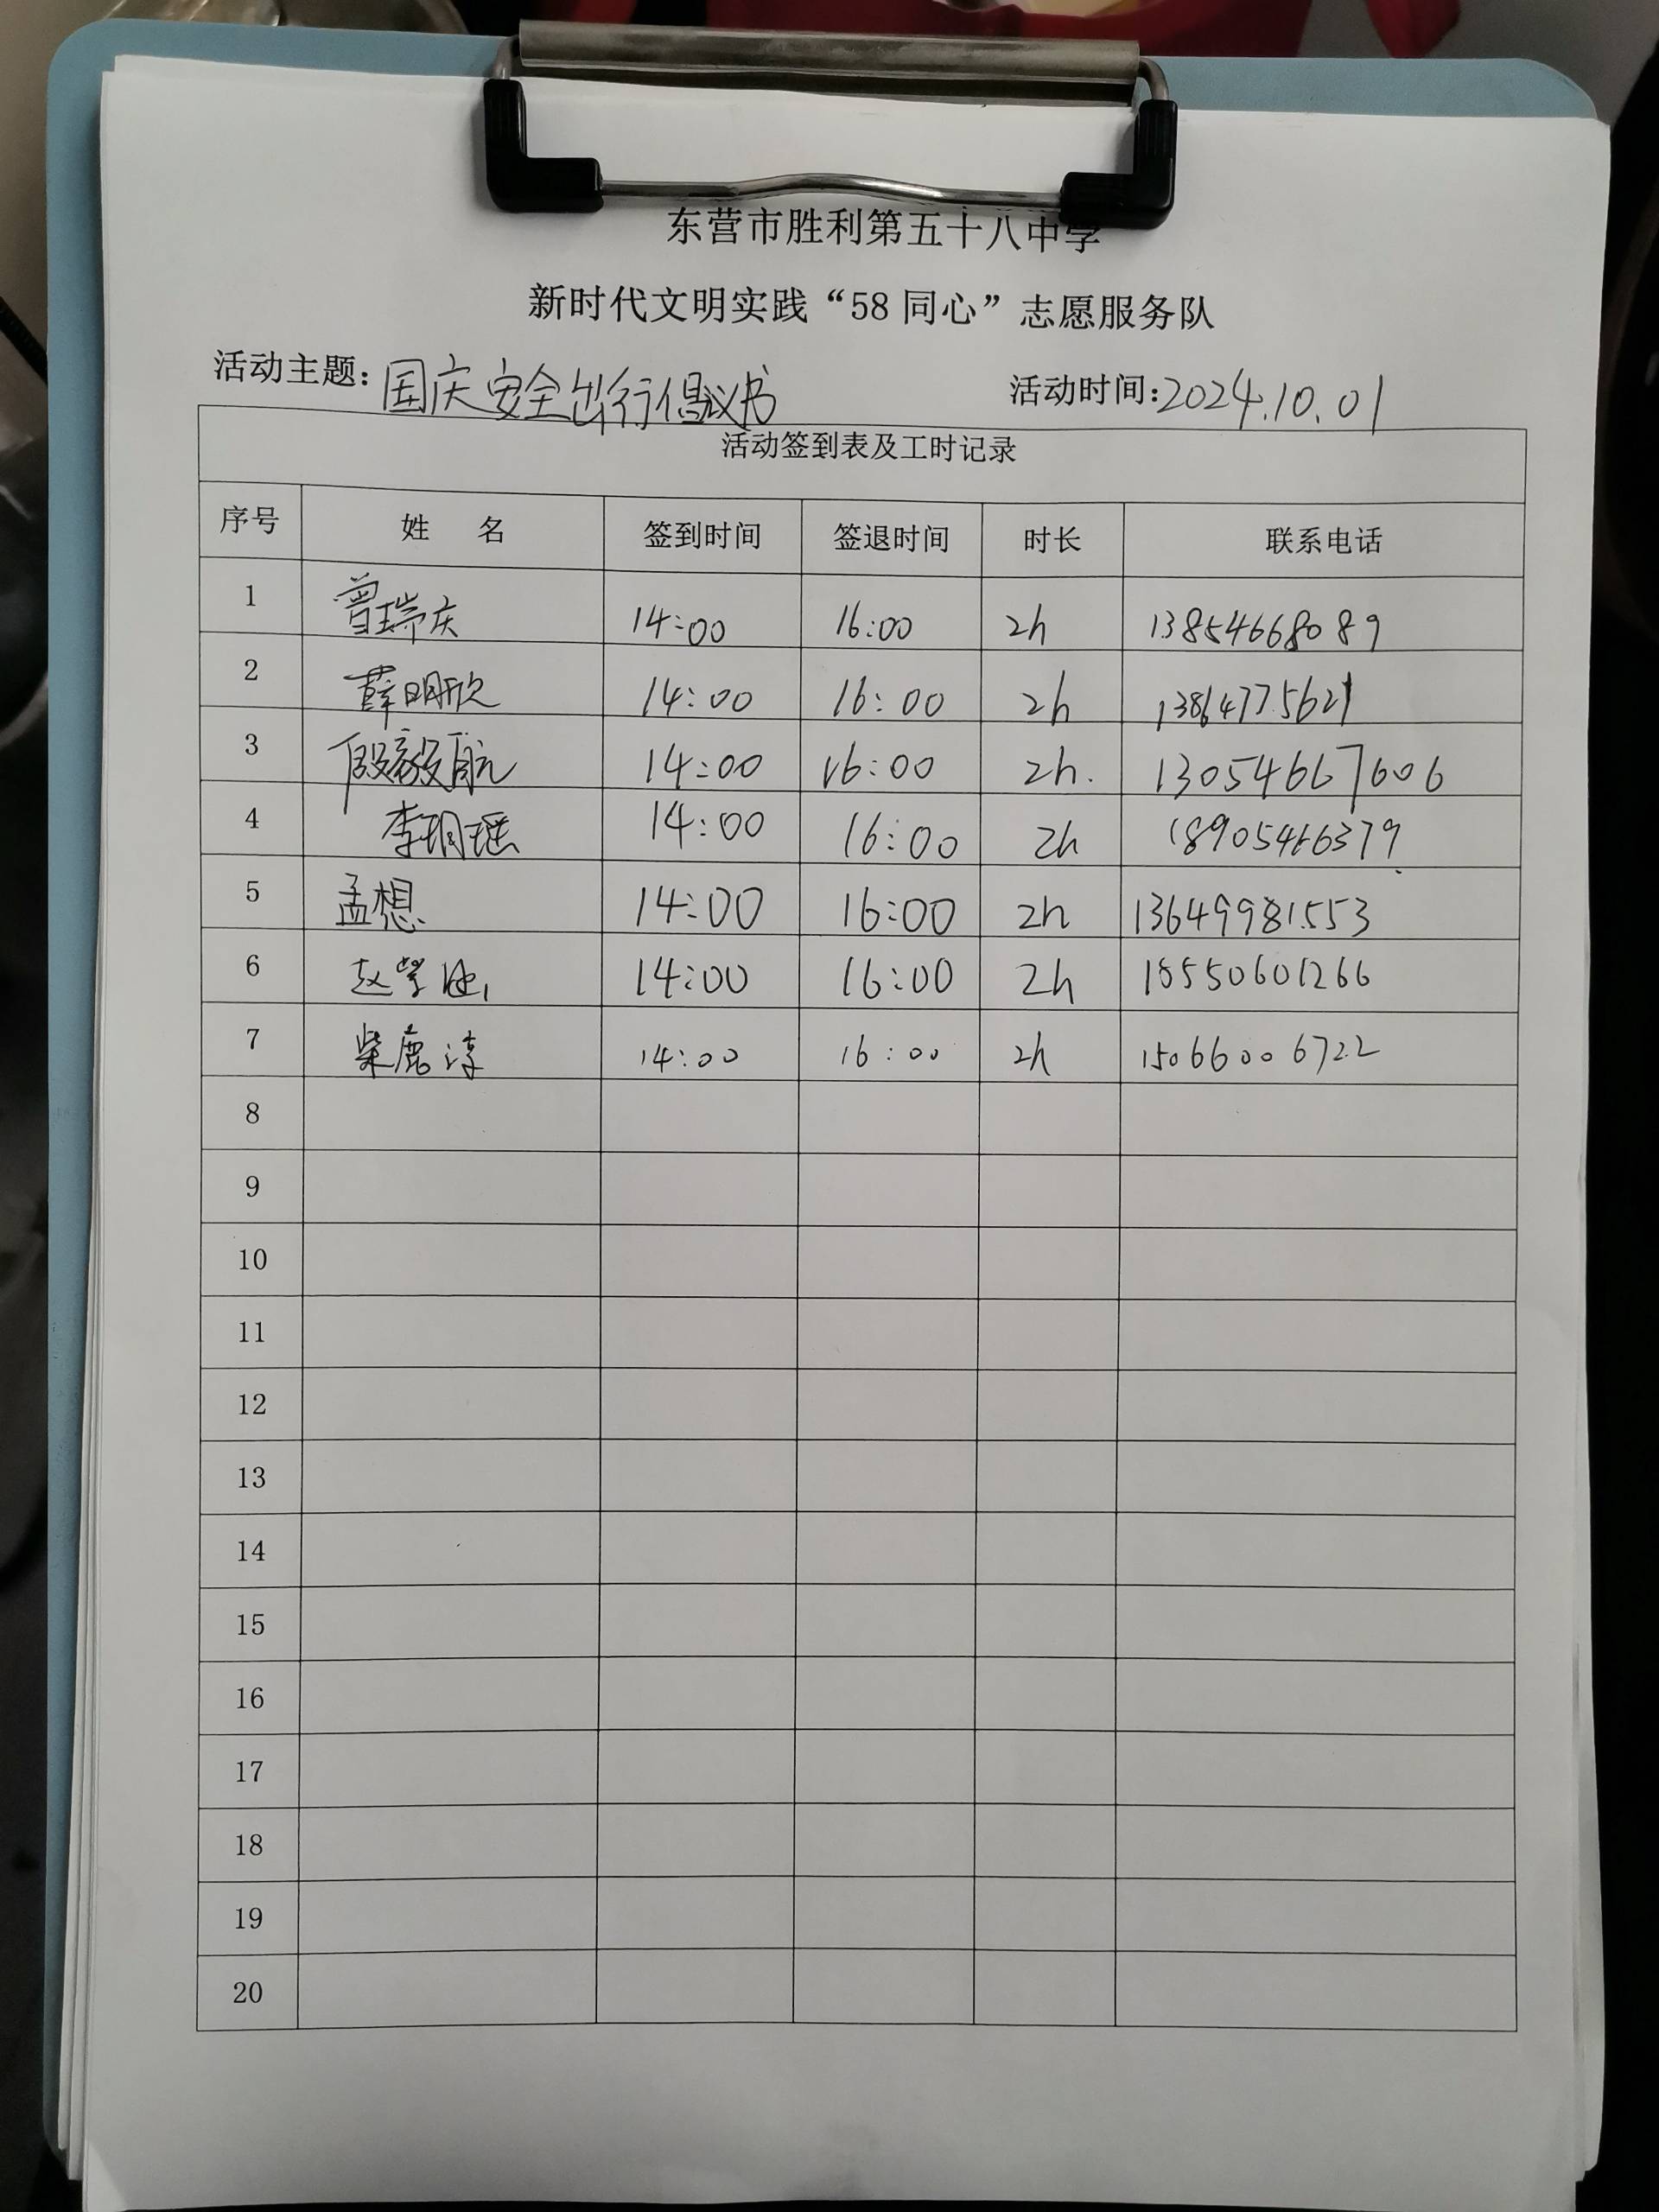 东营市胜利第五十八中学
新时代文明实践“58 同心”志愿服务队
活动主题：国庆安全出行倡议书 活动时间：2024.10.01
活动签到表及工时记录
序号 姓 名 签到时间 签退时间 时长 联系电话
1 曾瑞庆 14:00 16:00 2h 13854668089
2 薛明欣 14:00 16:00 2h 13864775621
3 殷毅航 14:00 16:00 2h. 13054667606
4 李玥瑶 14:00 16:00 2h 18905466379
5 孟想 14:00 16:00 2h 13649981553
6 14:00 16:00 2h 18550601266
7 柴鹿淳 14:00 16:00 2h 15066006722
8
9
10
11
12
13
14
15
16
17
18
19
20